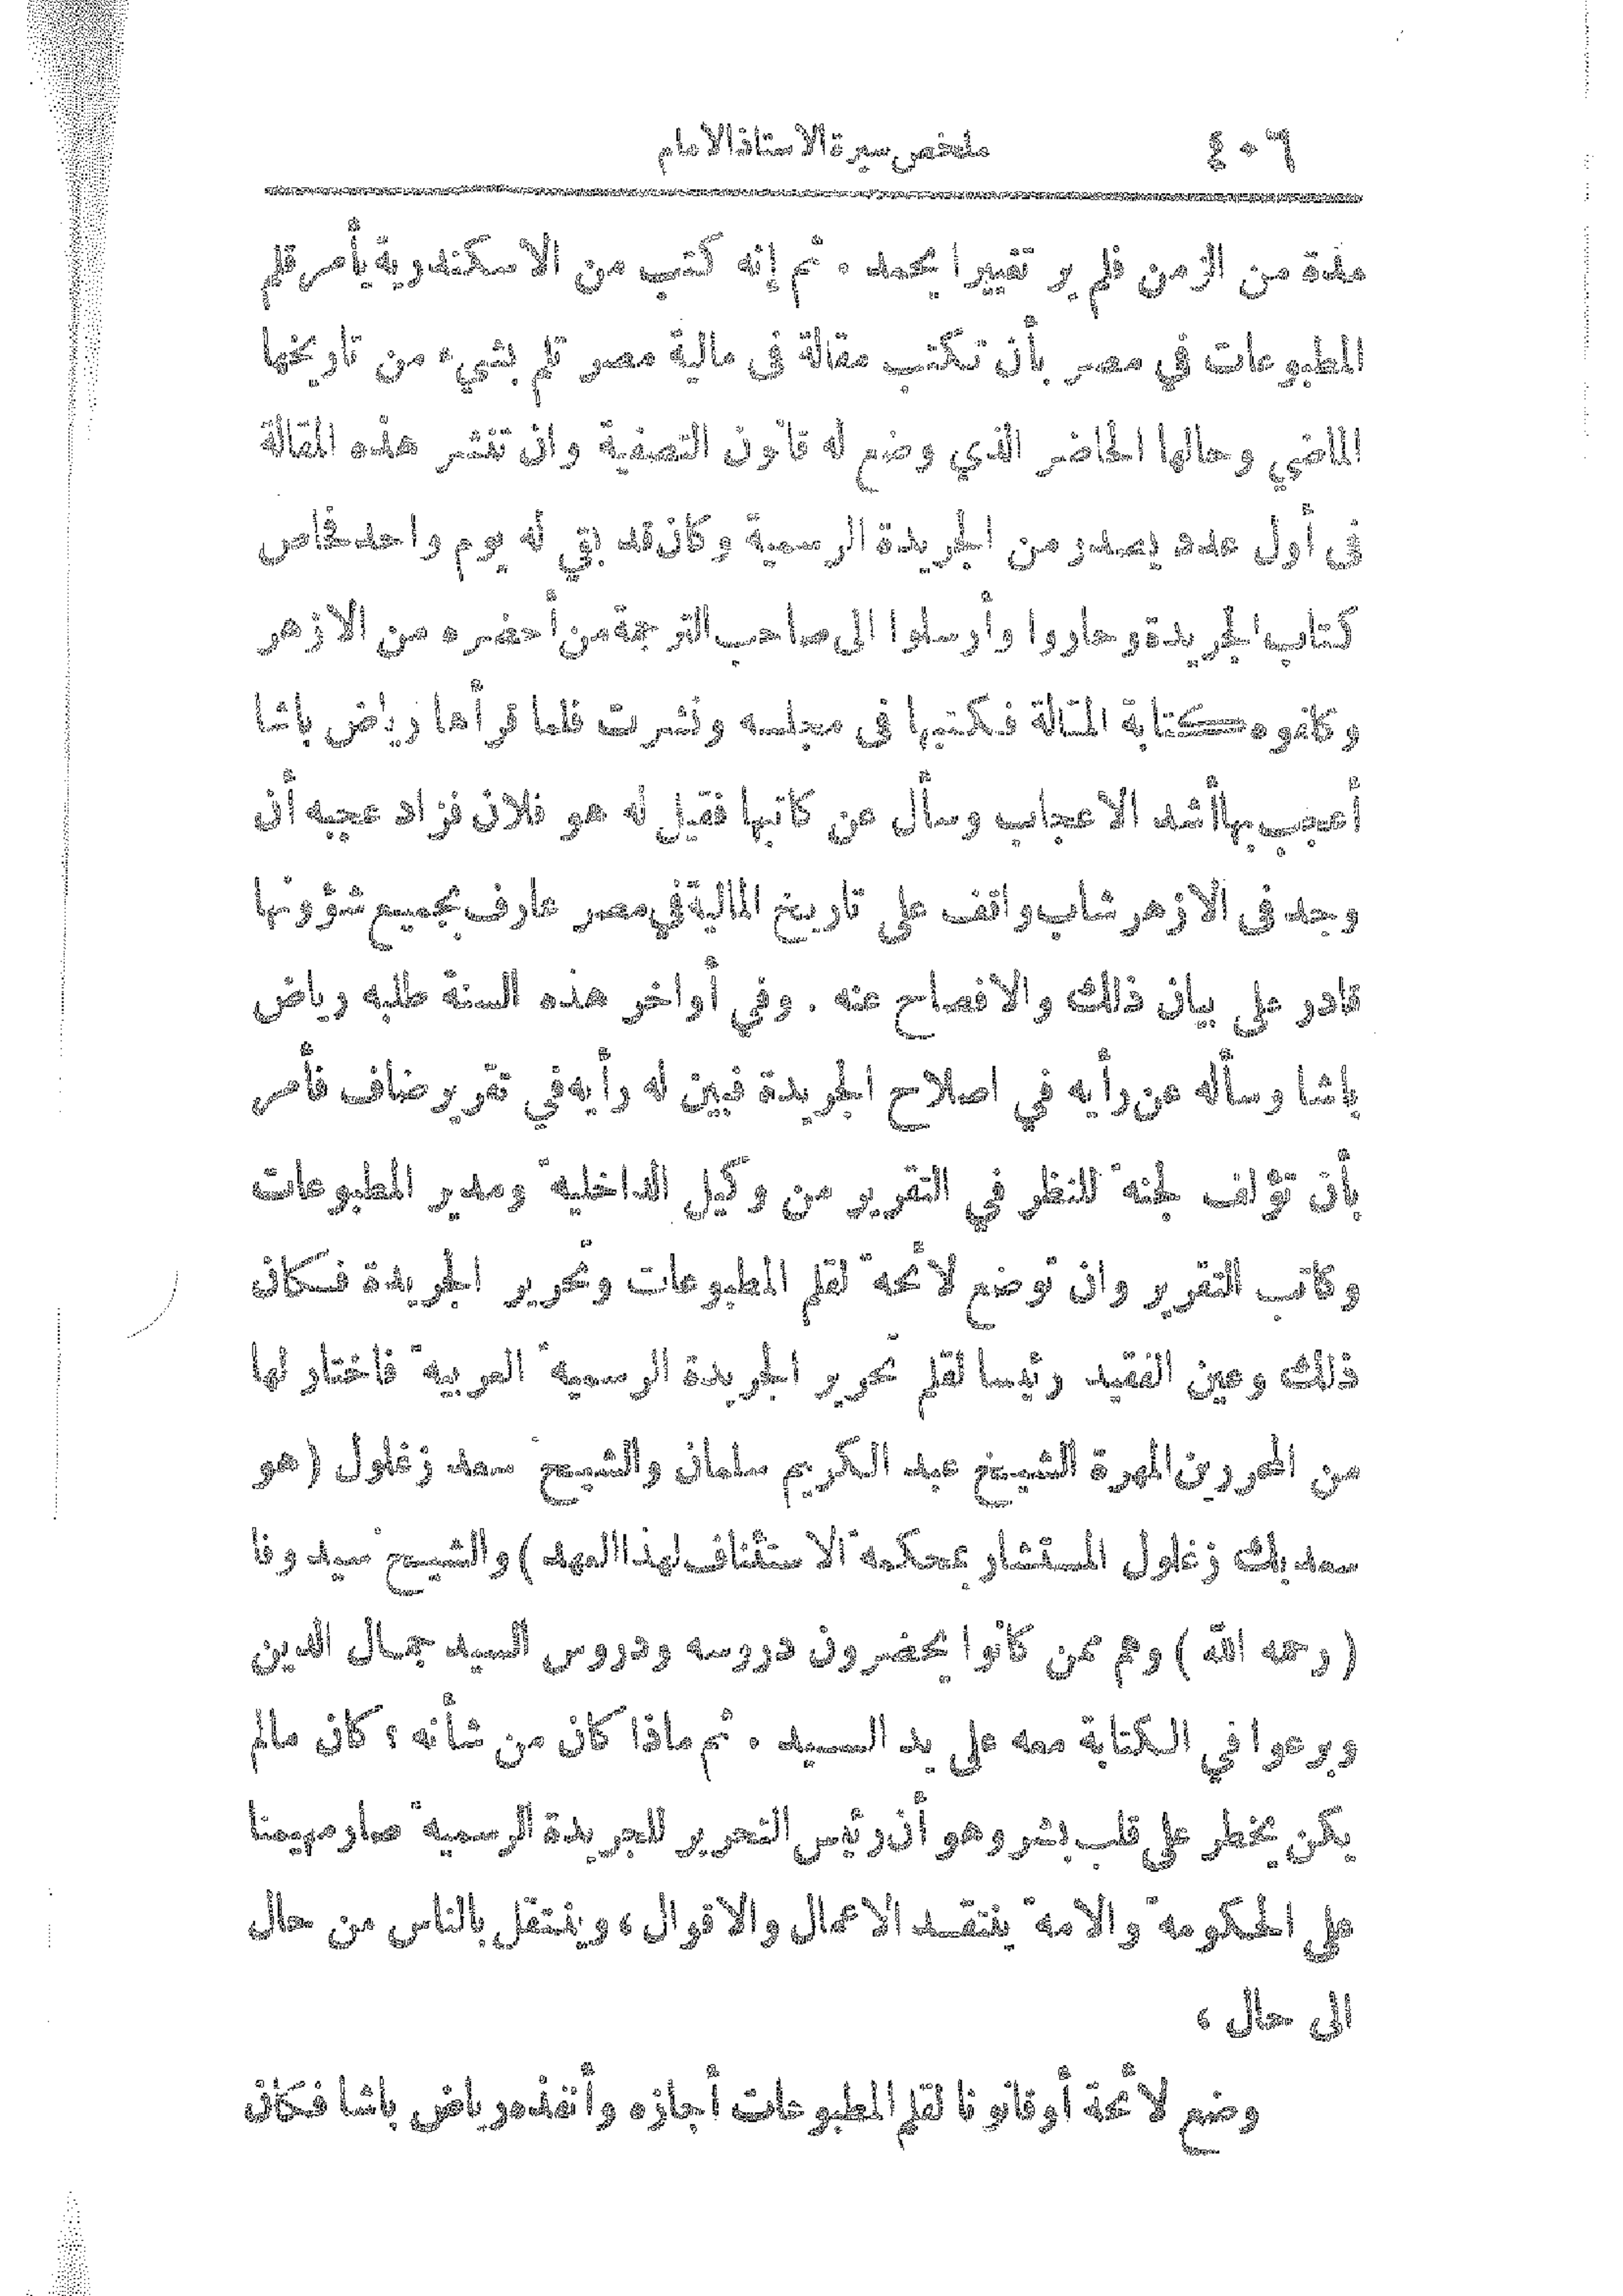 ٤٠٦
ملخص سيرة الاستاذ الامام
مدة من الزمن فلم ير تغييرا يحمد . ثم إنه كتب من الاسكندرية يأمر قلم
المطبوعات في مصر بأن تكتب مقالة فى مالية مصر تلم بشيء من تاريخها
الماضي وحالها الحاضر الذي وضع له قانون التصفية وان تنشر هذه المقالة
فى أول عدد يصدر من الجريدة الرسمية وكان قد بقي له يوم واحد فحاص
كتاب الجريدة وحاروا وأرسلوا الى صاحب الترجمة من أحضره من الازهر
وكلفوه كتابة المقالة فكتبها فى مجلسه ونشرت فلما قرأها رياض باشا
أعجب بها أشد الاعجاب وسأل عن كاتبها فقيل له هو فلان فزاد عجبه أن
وجد فى الازهر شاب واقف على تاريخ المالية في مصر عارف بجميع شؤونها
قادر على بيان ذلك والافصاح عنه . وفي أواخر هذه السنة طلبه رياض
باشا وسأله عن رأيه في اصلاح الجريدة فبين له رأيه في تقرير ضاف فأمر
بأن تؤلف لجنة للنظر في التقرير من وكيل الداخلية ومدير المطبوعات
وكاتب التقرير وان توضع لائحة لقلم المطبوعات وتحرير الجريدة فكان
ذلك وعين الفقيد رئيسا لقلم تحرير الجريدة الرسمية العربية فاختار لها
من المحررين المهرة الشيخ عبد الكريم سلمان والشيخ سعد زغلول (هو
سعد بك زغلول المستشار بمحكمة الاستئناف لهذا العهد) والشيخ سيد وفا
(رحمه الله) وهم ممن كانوا يحضرون دروسه ودروس السيد جمال الدين
وبرعوا في الكتابة معه على يد السيد . ثم ماذا كان من شأنه ؟ كان مالم
يكن يخطر على قلب بشر وهو أن رئيس التحرير للجريدة الرسمية صار مهيمنا
على الحكومة والامة ينتقد الاعمال والاقوال ، وينتقل بالناس من حال
الى حال ،
وضع لائحة أو قانونا لقلم المطبوعات أجازه وأنفذه رياض باشا فكان